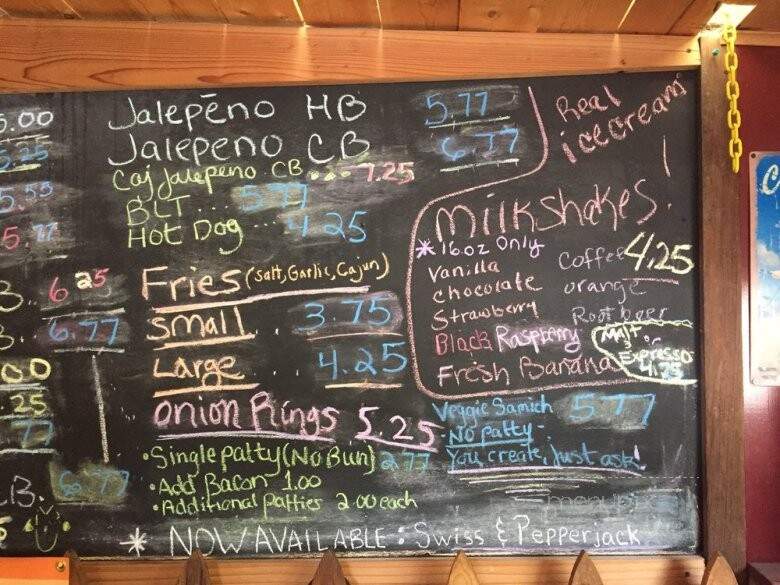 5.00
5.25
5.55
5.77
B.. 6.25
B. 6.77
.25
77
B. 6.77
Jalepēno HB 5.77
Jalepeno CB 6.77
Caj Jalepeno CB ... 7.25
BLT ... 5.77
Hot Dog ... 4.25
Fries (Salt, Garlic, Cajun)
Small .. 3.75
Large .. 4.25
Onion Rings 5.25
• Single patty (No Bun) 2.77
• Add Bacon 1.00
• Additional patties 2.00 each
Real
icecream
Milkshakes!
*16.oz Only 4.25
Vanilla Coffee
Chocolate orange
Strawberry Rootbeer
Black Raspberry
Fresh Banana
Malt
or
Expresso
4.75
Veggie Samich 5.77
- No patty -
You create, Just ask!
* NOW AVAILABLE: Swiss & Pepperjack